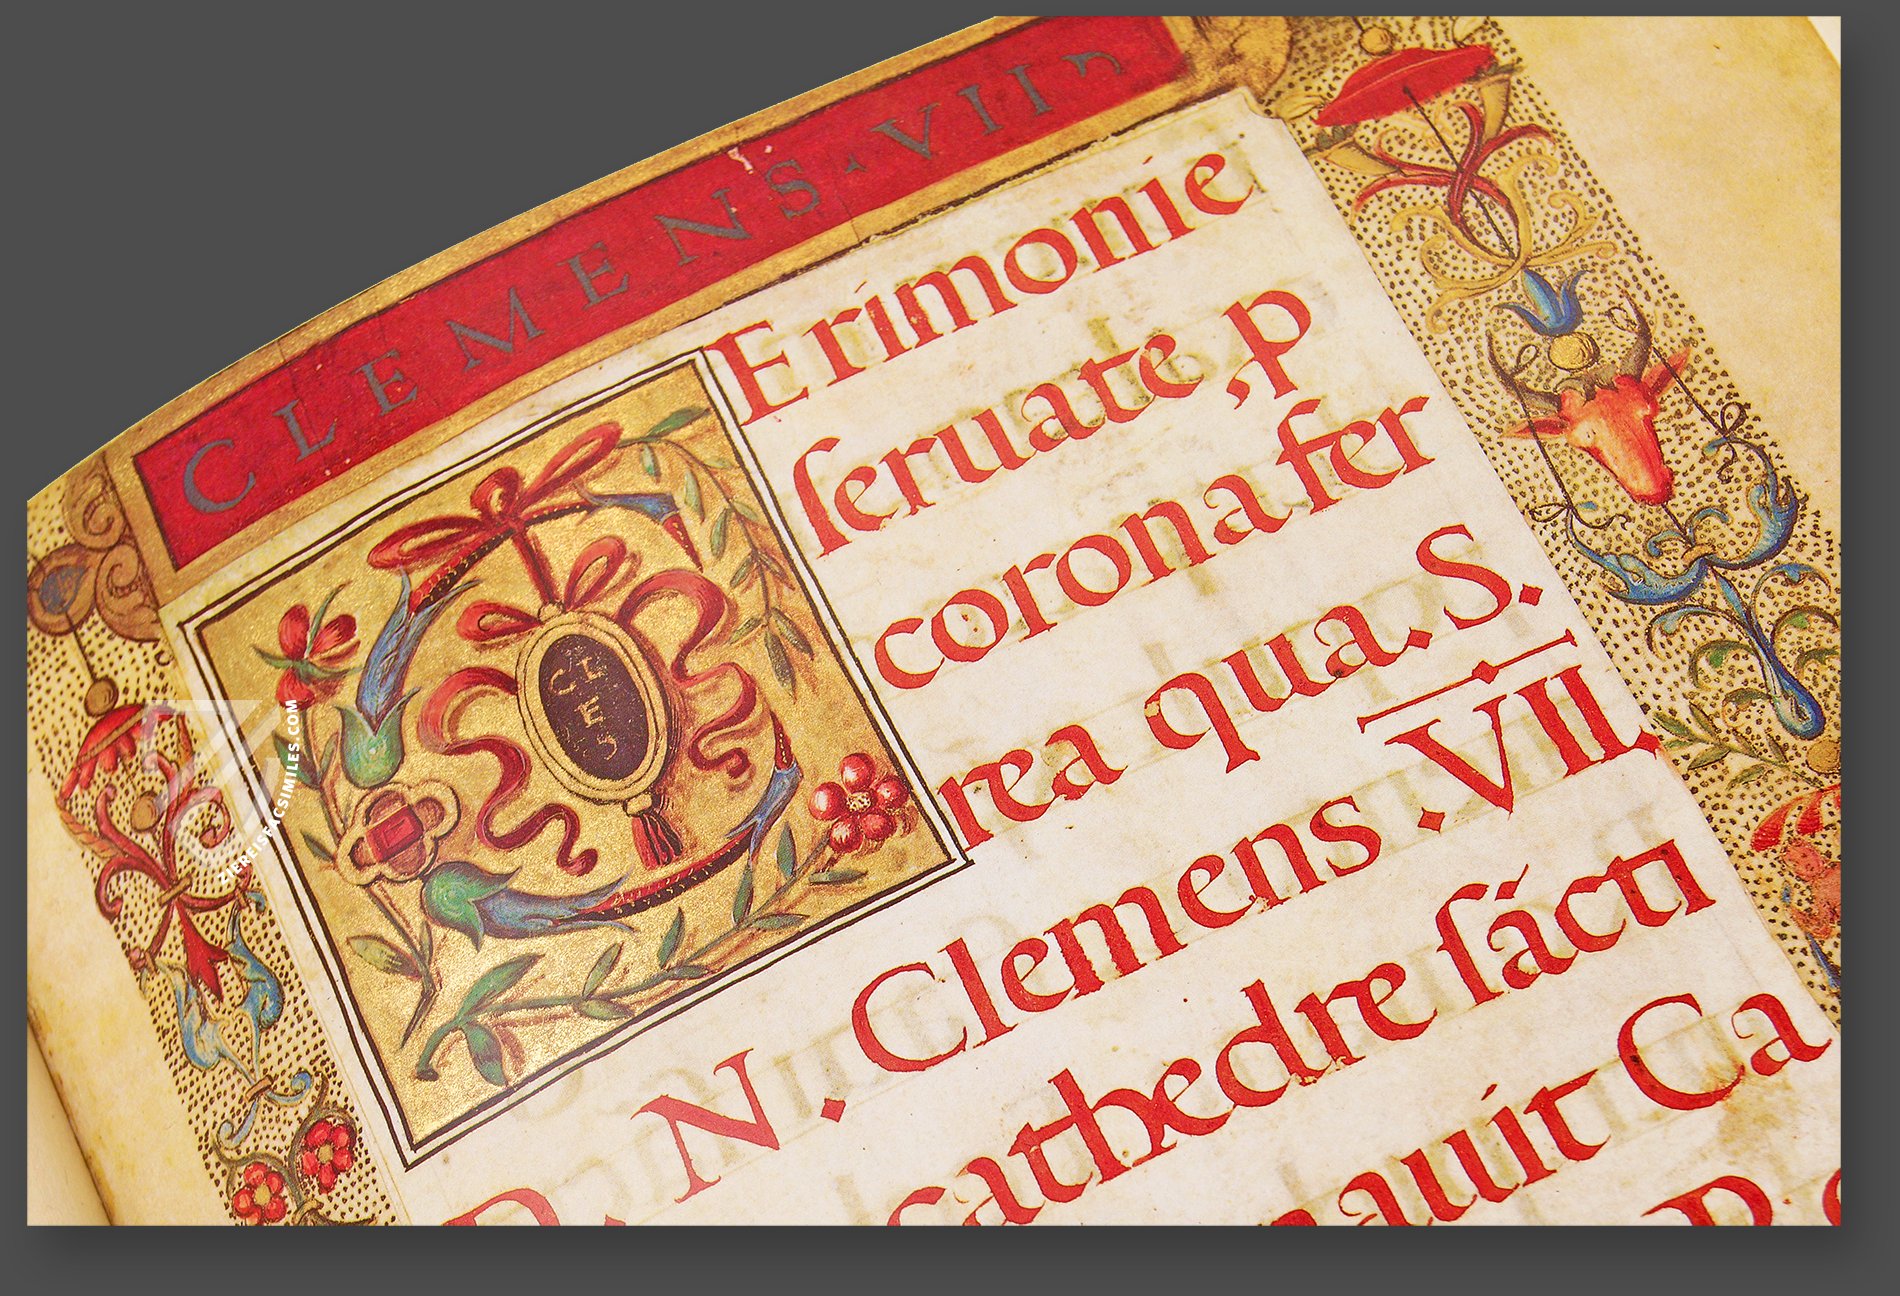 CLEMENS · VII
CErimonie
seruate, p
corona fer
rea qua. S.
D. N. Clemens .VII.
cathedre sācti
auit Ca
CLES
ZIEREISFACSIMILES.COM